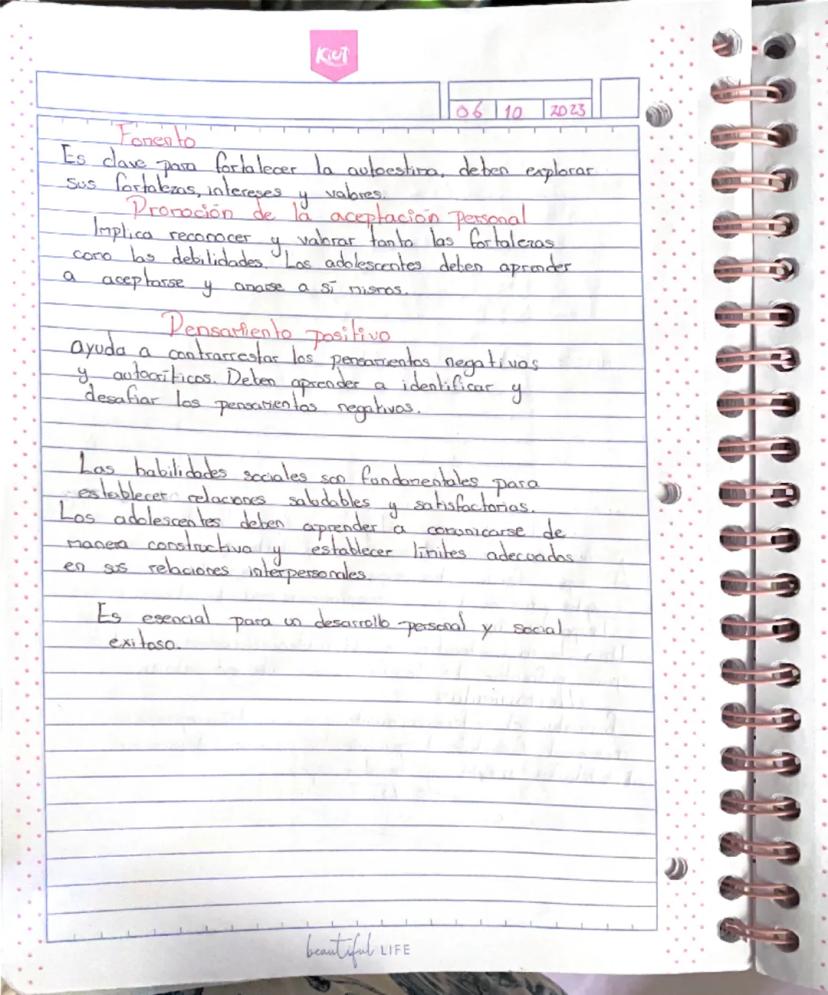 KIUT
06 10 2023
Fomento
Es clave para fortalecer la autoestima, deben explorar
sus fortalezas, intereses y valores.
Promoción de la aceptación personal
Implica reconocer y valorar tanto las fortalezas
como las debilidades. Los adolescentes deben aprender
a aceptarse y amarse a sí mismos.
Pensamiento positivo
ayuda a contrarrestar los pensamientos negativos
y autocríticos. Deben aprender a identificar y
desafiar los pensamientos negativos.
Las habilidades sociales son fundamentales para
establecer relaciones saludables y satisfactorias.
Los adolescentes deben aprender a comunicarse de
manera constructiva y establecer límites adecuados
en sus relaciones interpersonales.
Es esencial para un desarrollo personal y social
exitoso.
beautiful LIFE